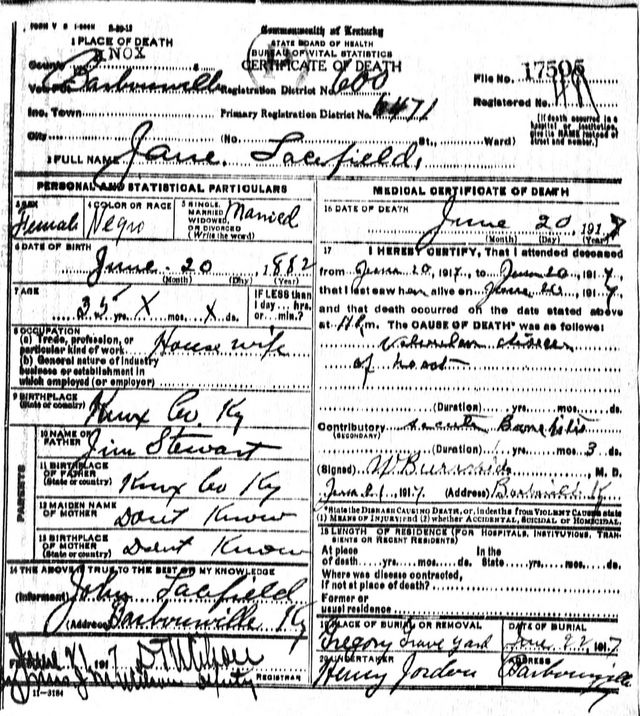 FORM V S 1-500M 8-20-15
Commonwealth of Kentucky
STATE BOARD OF HEALTH
BUREAU OF VITAL STATISTICS
CERTIFICATE OF DEATH
1 PLACE OF DEATH
County KNOX
Vot. Pct. Barbourville Registration District No. 600
File No. 17505
Inc. Town Primary Registration District No. 6471
Registered No.
[If death occurred in a hospital or institution, give its NAME instead of street and number.]
City (No. St., Ward)
2 FULL NAME Jane Lacefield,
PERSONAL AND STATISTICAL PARTICULARS
3 SEX Female
4 COLOR OR RACE Negro
5 SINGLE, MARRIED WIDOWED, OR DIVORCED (Write the word) Married
6 DATE OF BIRTH
June 20, 1882
(Month) (Day) (Year)
7 AGE
35 yrs. X mos. X ds.
IF LESS than 1 day... hrs. or... min.?
8 OCCUPATION
(a) Trade, profession, or particular kind of work House wife
(b) General nature of industry business or establishment in which employed (or employer)
9 BIRTHPLACE (State or country) Knox Co Ky
PARENTS
10 NAME OF FATHER Jim Stewart
11 BIRTHPLACE OF FATHER (State or country) Knox Co Ky
12 MAIDEN NAME OF MOTHER Dont Know
13 BIRTHPLACE OF MOTHER Dont Know
14 THE ABOVE IS TRUE TO THE BEST OF MY KNOWLEDGE
(Informant) John Lacefield
(Address) Barbourville Ky
15
Filed June 21 1917 D. T. Wilson
REGISTRAR
Deputy
11-3184
MEDICAL CERTIFICATE OF DEATH
16 DATE OF DEATH
June 20, 1917
(Month) (Day) (Year)
17 I HEREBY CERTIFY, That I attended deceased
from June 20, 1917, to June 20, 1917,
that I last saw her alive on June 20, 1917
and that death occurred on the date stated above
at m. The CAUSE OF DEATH* was as follows:
of heart
(Duration) yrs. mos. ds.
Contributory acute
(SECONDARY)
(Duration) yrs. mos. 3 ds.
(Signed) W Burnside, M. D.
June 21, 1917. (Address) Barbourville Ky
*State the DISEASE CAUSING DEATH, or, in deaths from VIOLENT CAUSES state
(1) MEANS OF INJURY; and (2) whether ACCIDENTAL, SUICIDAL or HOMICIDAL.
18 LENGTH OF RESIDENCE (FOR HOSPITALS, INSTITUTIONS, TRANSIENTS OR RECENT RESIDENTS)
At place of death yrs. mos. ds. In the State yrs. mos. ds.
Where was disease contracted,
If not at place of death?
Former or usual residence
19 PLACE OF BURIAL OR REMOVAL Gregory Grave Yard
DATE OF BURIAL June 22, 1917
20 UNDERTAKER Henry Jordon
ADDRESS Barbourville